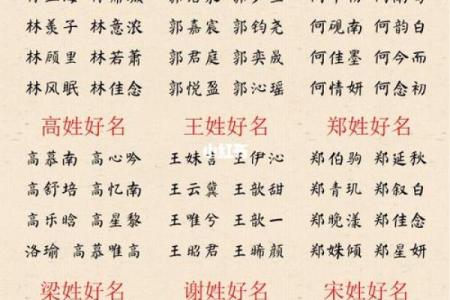 林羡子 林意浓 郭嘉宸 郭钧尧 何砚南 何韵白
林顾里 林若萧 郭君庭 郭奕晟 何佳墨 何今而
林风眠 林佳念 郭悦盈 郭沁瑶 何情妍 何念初
高姓好名 王姓好名 郑姓好名
小红书
高慕南 高心吟 王伊沁 郑伯驹 郑延秋
高舒培 高忆南 王云冀 王歆甜 郑青玑 郑叙白
高乐晗 高星黎 王唯兮 王歆一 郑晚漾 郑佳念
洛瑜 高慕唯高 王昭君 王晞颜 郑姝倾 郑星妍
梁姓好名 谢姓好名 宋姓好名